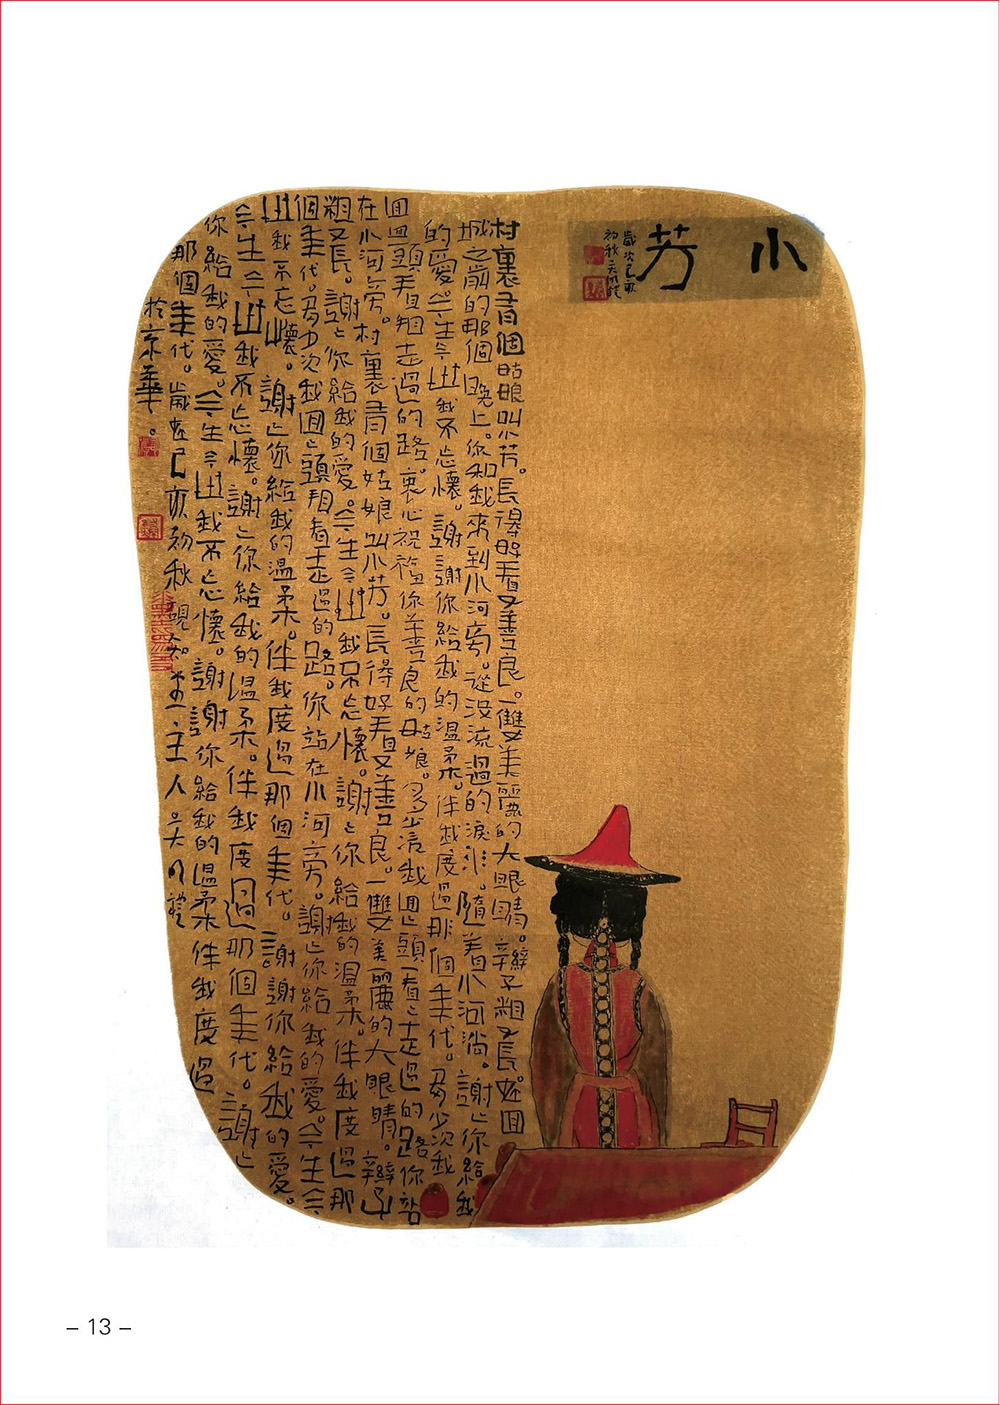 小芳
歲次己亥
初秋
村裏有個姑娘叫小芳。長得好看又善良。一雙美麗的大眼睛。辮子粗又長。在回
城之前的那個晚上。你和我來到小河旁。從没流過的淚水。隨着小河淌。謝〻你給我
的愛。今生今世我不忘懷。謝謝你給我的温柔。伴我度過那個年代。多少次我
回回頭看走過的路。衷心祝福你善良的姑娘。多少我回頭看〻走過的路你站
在小河旁。村裏有個姑娘叫小芳。長得好看又善良。一雙美麗的大眼睛。辮子
粗又長。謝〻你給我的愛。今生今世我不忘懷。謝〻你給我的温柔。伴我度過那
個年代。多少次我回〻頭看走過的路。你站在小河旁。謝〻你給我的愛。今生今
世我不忘懷。謝〻你給我的温柔。伴我度過那個年代。謝謝你給我的愛。
今生今世我不忘懷。謝〻你給我的温柔。伴我度過那個年代。謝〻
你給我的愛。今生今世我不忘懷。謝謝你給我的温柔伴我度過
那個年代。歲在己亥初秋硯知主人吴明
於京華。
– 13 –